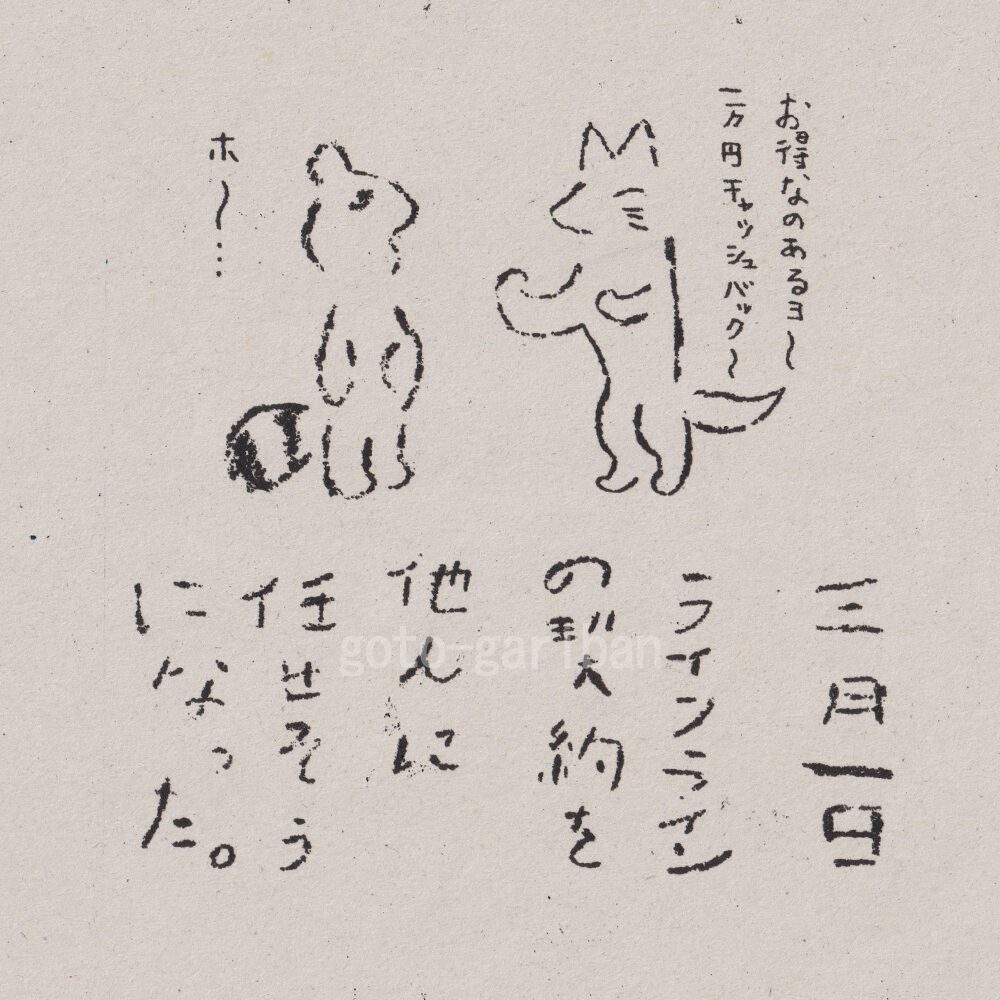 お得なのあるヨ〜
一万円キャッシュバック〜
ホ〜…
三月一日
ラインライン
の契約を
他人に
任せそう
になった。
goto-gariban